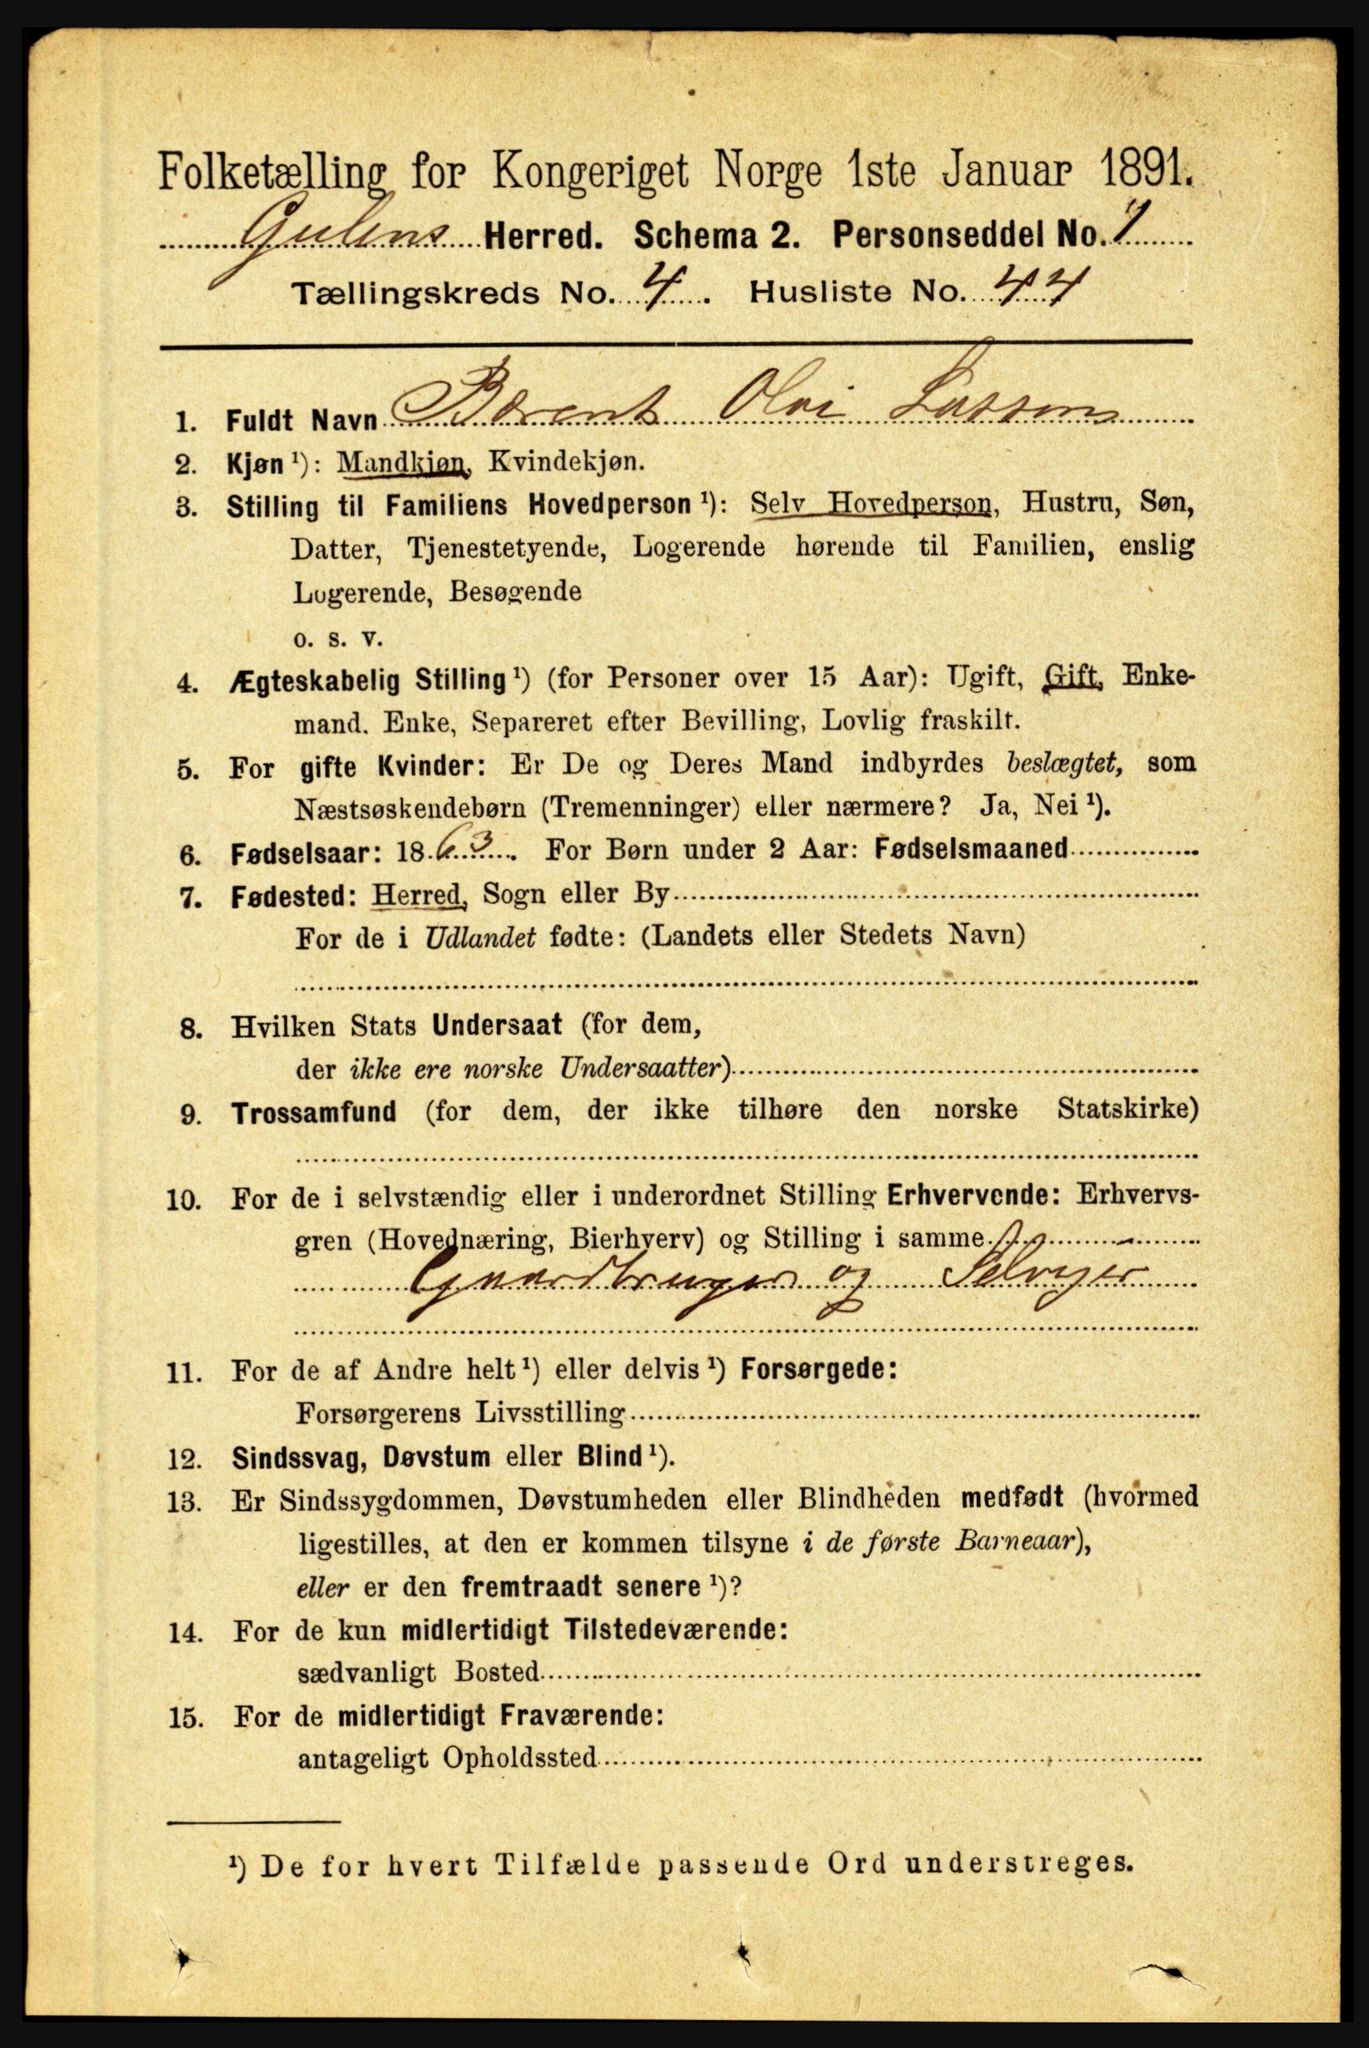 Folketælling for Kongeriget Norge 1ste Januar 1891.
Gulens Herred. Schema 2. Personseddel No. 1
Tællingskreds No. 4. Husliste No. 44
1. Fuldt Navn Berent Olai Lassen
2. Kjøn ¹): Mandkjøn, Kvindekjøn.
3. Stilling til Familiens Hovedperson ¹): Selv Hovedperson, Hustru, Søn,
Datter, Tjenestetyende, Logerende hørende til Familien, enslig
Logerende, Besøgende
o. s. v.
4. Ægteskabelig Stilling ¹) (for Personer over 15 Aar): Ugift, Gift, Enke-
mand. Enke, Separeret efter Bevilling, Lovlig fraskilt.
5. For gifte Kvinder: Er De og Deres Mand indbyrdes beslægtet, som
Næstsøskendebørn (Tremenninger) eller nærmere? Ja, Nei ¹).
6. Fødselsaar: 1863. For Børn under 2 Aar: Fødselsmaaned
7. Fødested: Herred, Sogn eller By
For de i Udlandet fødte: (Landets eller Stedets Navn)
8. Hvilken Stats Undersaat (for dem,
der ikke ere norske Undersaatter)
9. Trossamfund (for dem, der ikke tilhøre den norske Statskirke)
10. For de i selvstændig eller i underordnet Stilling Erhvervende: Erhvervs-
gren (Hovednæring, Bierhverv) og Stilling i samme
Gaardbruger og Selvejer
11. For de af Andre helt ¹) eller delvis ¹) Forsørgede:
Forsørgerens Livsstilling
12. Sindssvag, Døvstum eller Blind ¹).
13. Er Sindssygdommen, Døvstumheden eller Blindheden medfødt (hvormed
ligestilles, at den er kommen tilsyne i de første Barneaar),
eller er den fremtraadt senere ¹)?
14. For de kun midlertidigt Tilstedeværende:
sædvanligt Bosted
15. For de midlertidigt Fraværende:
antageligt Opholdssted
¹) De for hvert Tilfælde passende Ord understreges.